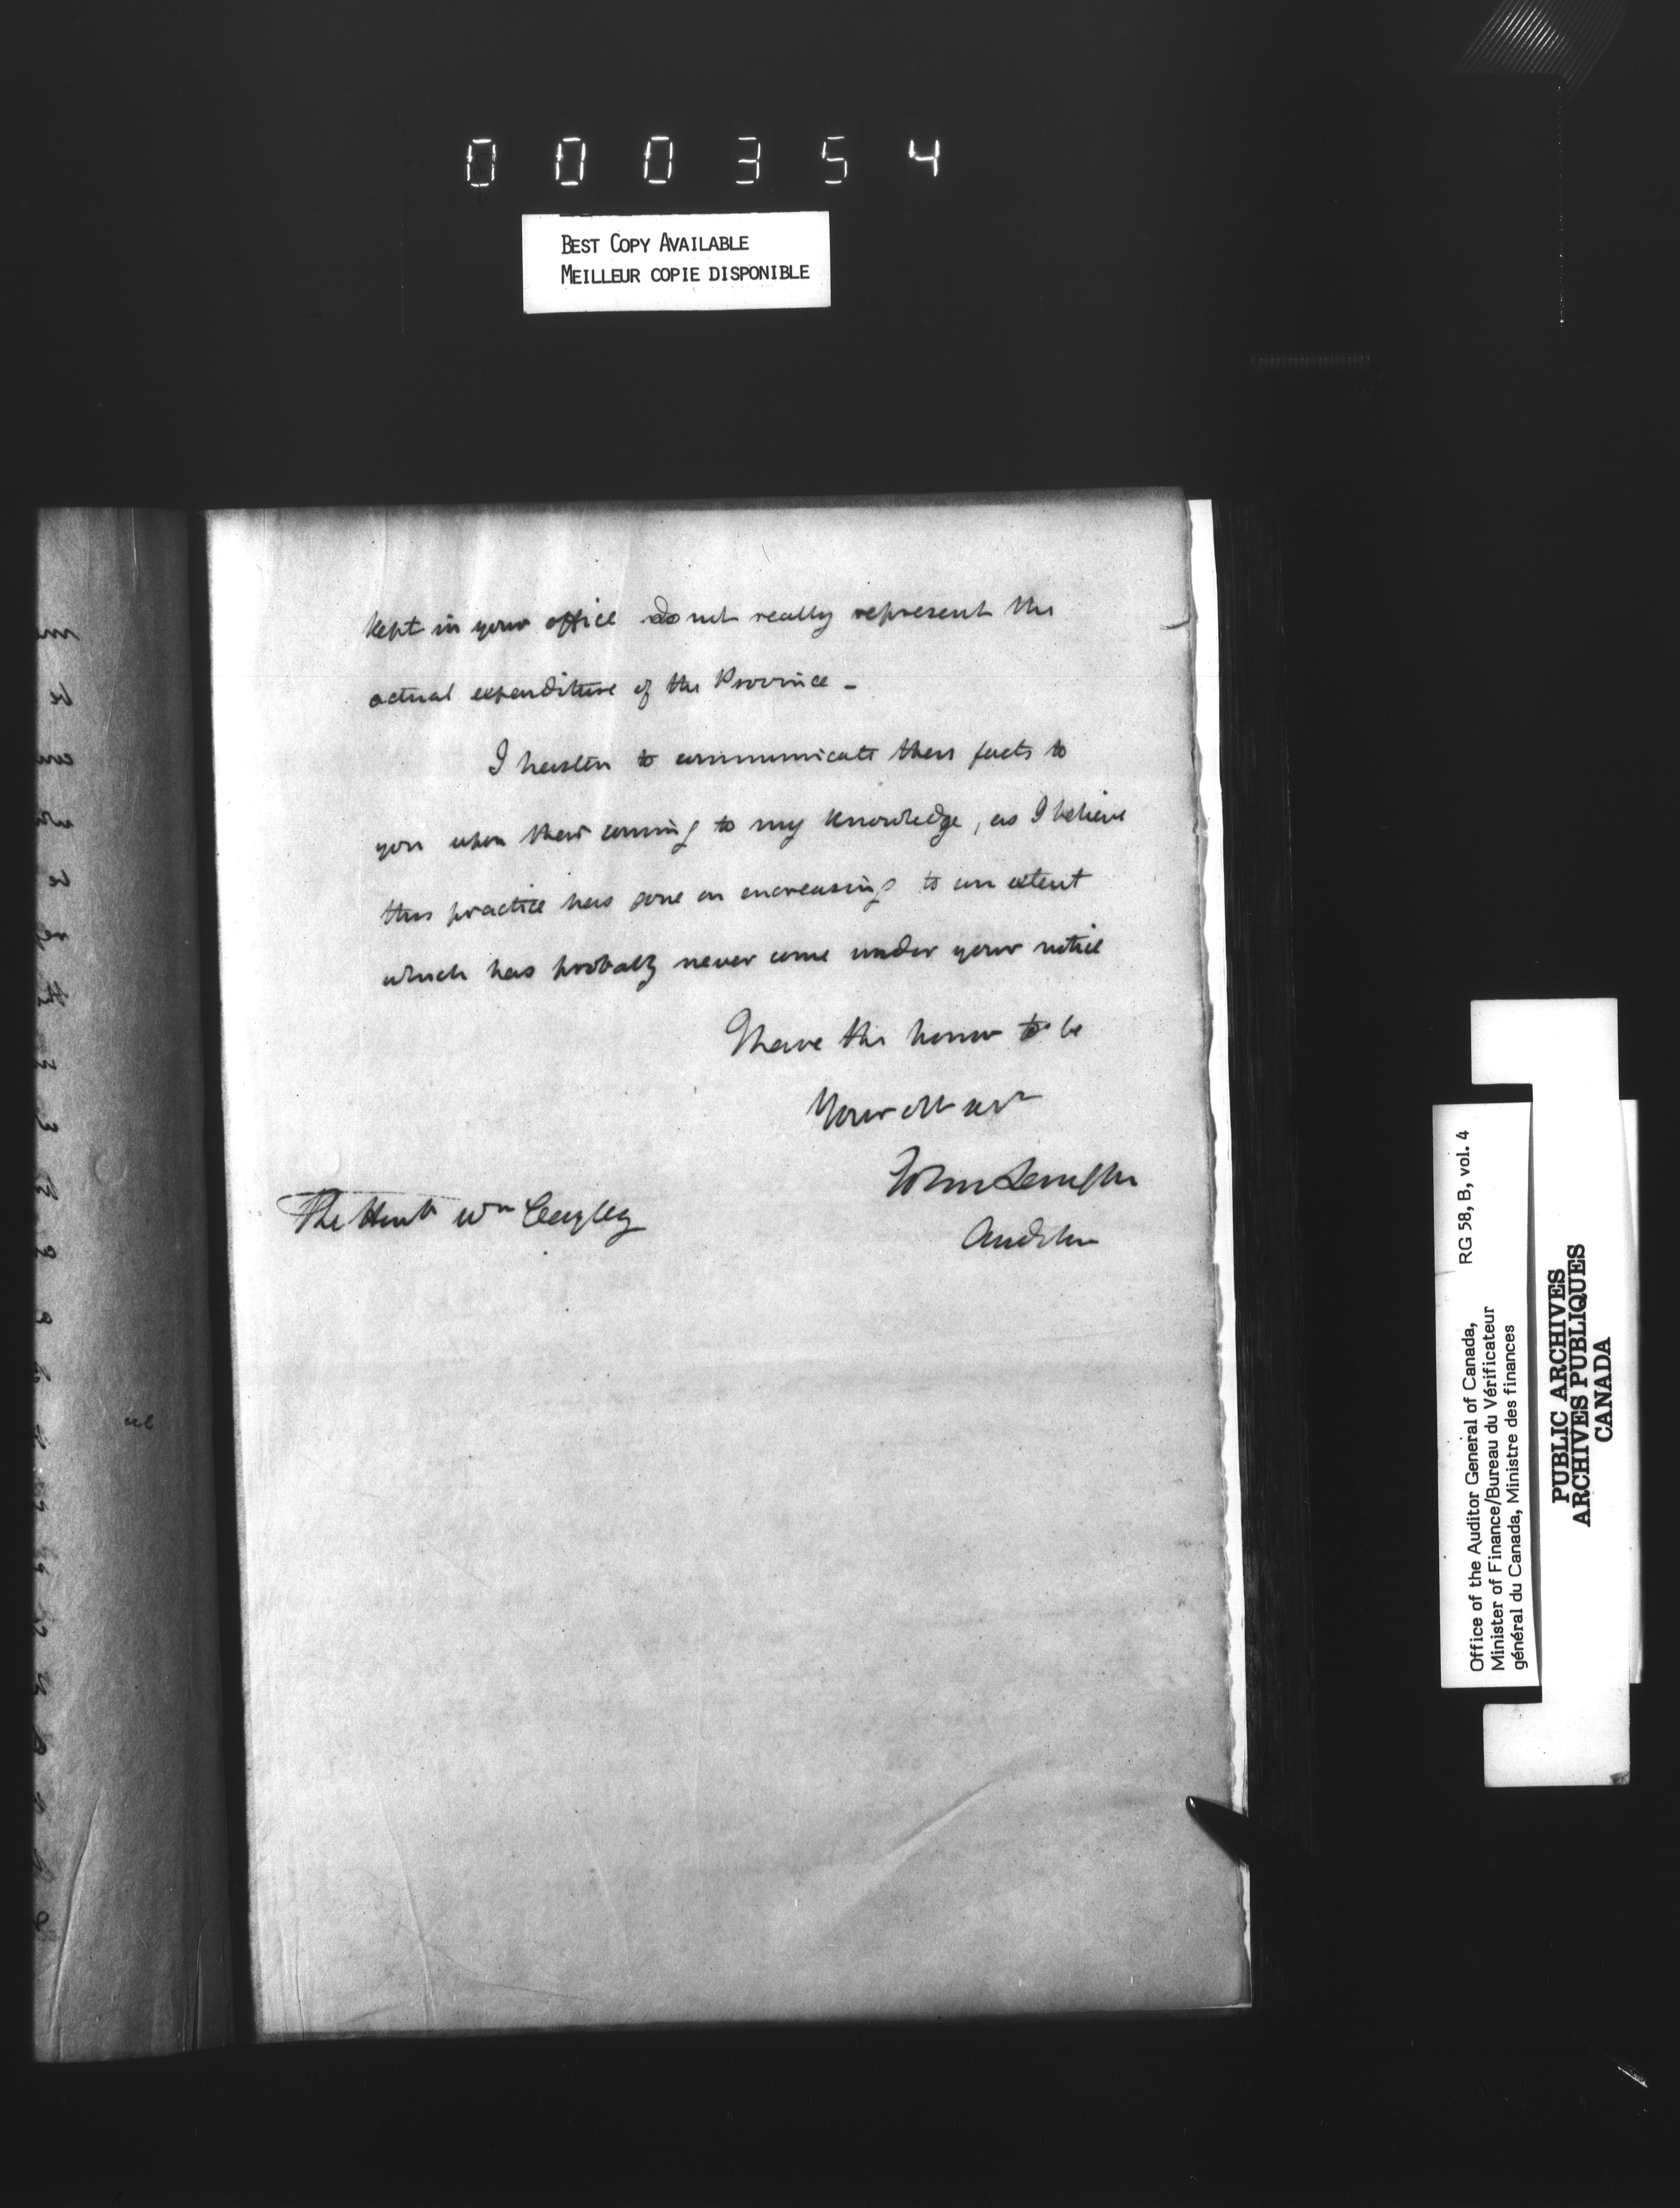 000354
BEST COPY AVAILABLE
MEILLEUR COPIE DISPONIBLE
kept in your office do not really represent the
actual expenditure of the Province -
I hasten to communicate these facts to
you upon their coming to my knowledge, as I believe
this practice has gone on encreasing to an extent
which has probably never come under your notice
I have the honor to be
Your obt servt
John Langton
Auditor
The Honble Wm Cayley
Office of the Auditor General of Canada, RG 58, B, vol. 4
Minister of Finance/Bureau du Vérificateur
général du Canada, Ministre des finances
PUBLIC ARCHIVES
ARCHIVES PUBLIQUES
CANADA